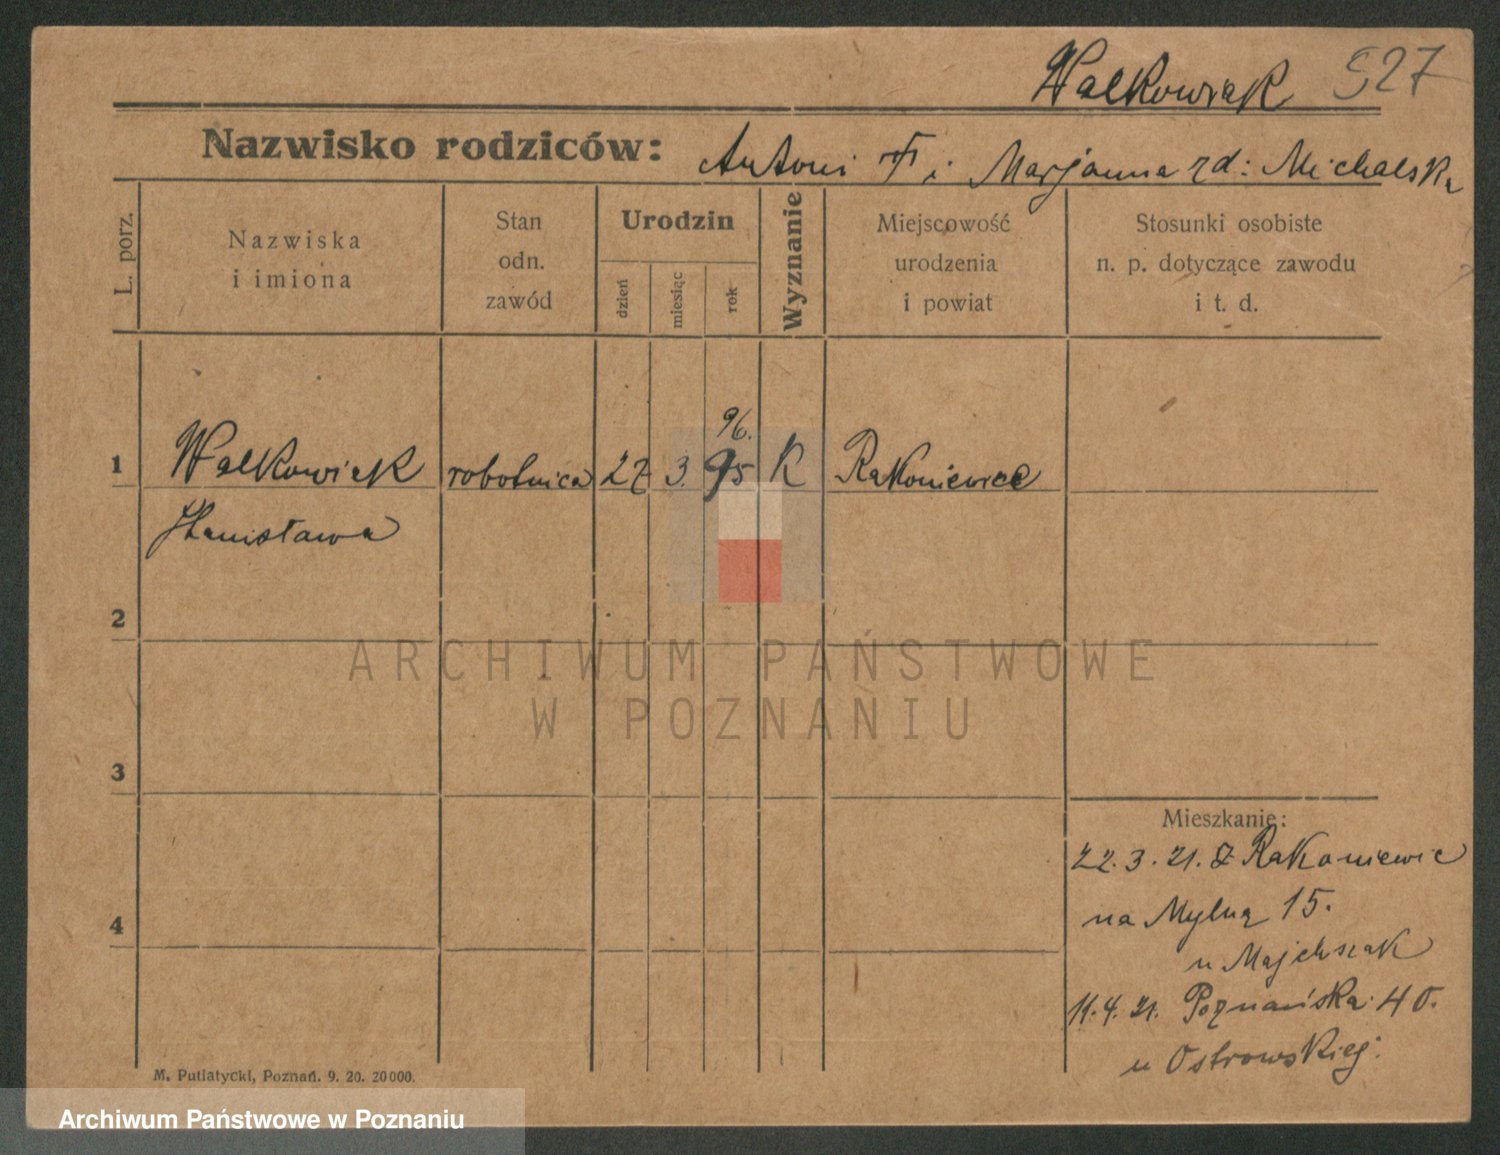 Walkowiak 927
Nazwisko rodziców: Antoni i Marjanna zd: Michalska
L. porz.
Nazwiska
i imiona
Stan
odn.
zawód
Urodzin
dzień
miesiąc
rok
Wyznanie
Miejscowość
urodzenia
i powiat
Stosunki osobiste
n. p. dotyczące zawodu
i t. d.
96.
1 Walkowiak robotnica 27 3. 95 K Rakoniewice
Stanisława
2
3
4
Mieszkanie:
22.3.21. z Rakoniewic
na Mylną 15.
u Majchszak
11.4.21. Poznańska 40.
u Ostrowskiej.
M. Putiatycki, Poznań. 9. 20. 20000.
ARCHIWUM PAŃSTWOWE
W POZNANIU
Archiwum Państwowe w Poznaniu